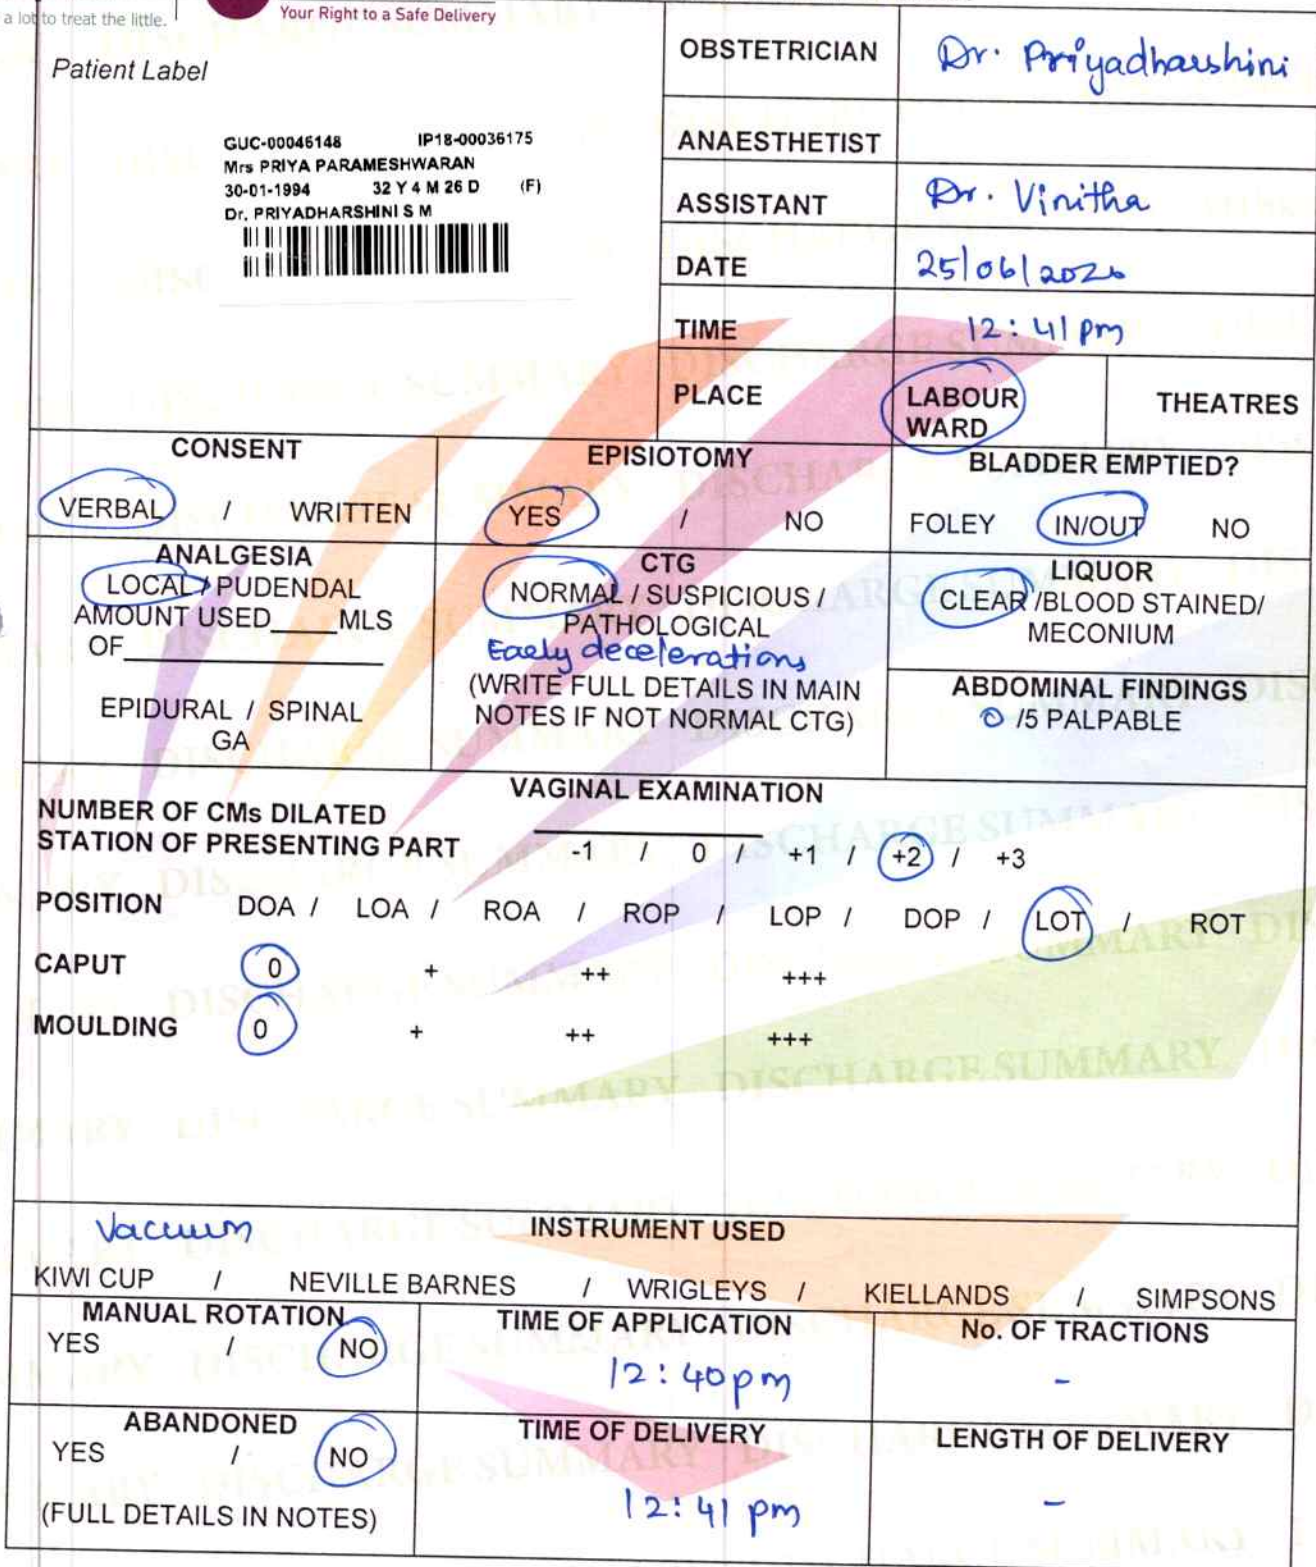 a lot to treat the little.
Your Right to a Safe Delivery
Patient Label
GUC-00046148 IP18-00036175
Mrs PRIYA PARAMESHWARAN
30-01-1994 32 Y 4 M 26 D (F)
Dr. PRIYADHARSHINI S M
OBSTETRICIAN Dr. Priyadharshini
ANAESTHETIST
ASSISTANT Dr. Vinitha
DATE 25/06/2026
TIME 12:41 pm
PLACE LABOUR WARD THEATRES
CONSENT
VERBAL / WRITTEN
EPISIOTOMY
YES / NO
BLADDER EMPTIED?
FOLEY IN/OUT NO
ANALGESIA
LOCAL / PUDENDAL
AMOUNT USED____MLS
OF
EPIDURAL / SPINAL
GA
CTG
NORMAL / SUSPICIOUS /
PATHOLOGICAL
Early decelerations
(WRITE FULL DETAILS IN MAIN
NOTES IF NOT NORMAL CTG)
LIQUOR
CLEAR /BLOOD STAINED/
MECONIUM
ABDOMINAL FINDINGS
0 /5 PALPABLE
VAGINAL EXAMINATION
NUMBER OF CMs DILATED
STATION OF PRESENTING PART -1 / 0 / +1 / +2 / +3
POSITION DOA / LOA / ROA / ROP / LOP / DOP / LOT / ROT
CAPUT 0 + ++ +++
MOULDING 0 + ++ +++
Vacuum
INSTRUMENT USED
KIWI CUP / NEVILLE BARNES / WRIGLEYS / KIELLANDS / SIMPSONS
MANUAL ROTATION
YES / NO
TIME OF APPLICATION
12:40 pm
No. OF TRACTIONS
-
ABANDONED
YES / NO
(FULL DETAILS IN NOTES)
TIME OF DELIVERY
12:41 pm
LENGTH OF DELIVERY
-